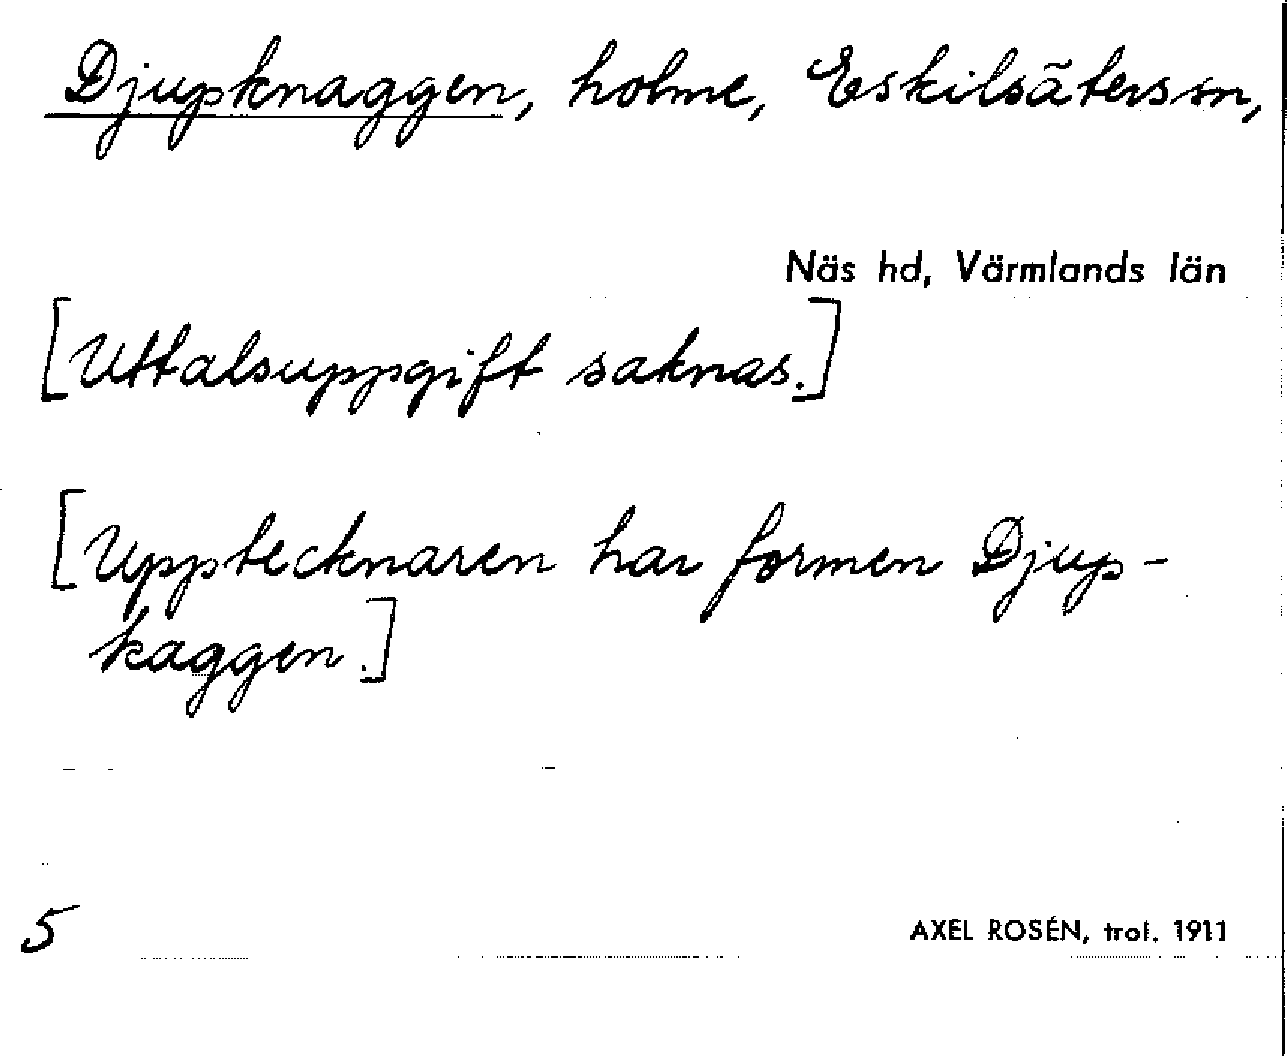 Djupknaggen, holme, Eskilsäters sn,
Näs hd, Värmlands län
[Uttalsuppgift saknas.]
[Upptecknaren har formen Djup-
kaggen.]
5
AXEL ROSÉN, trol. 1911